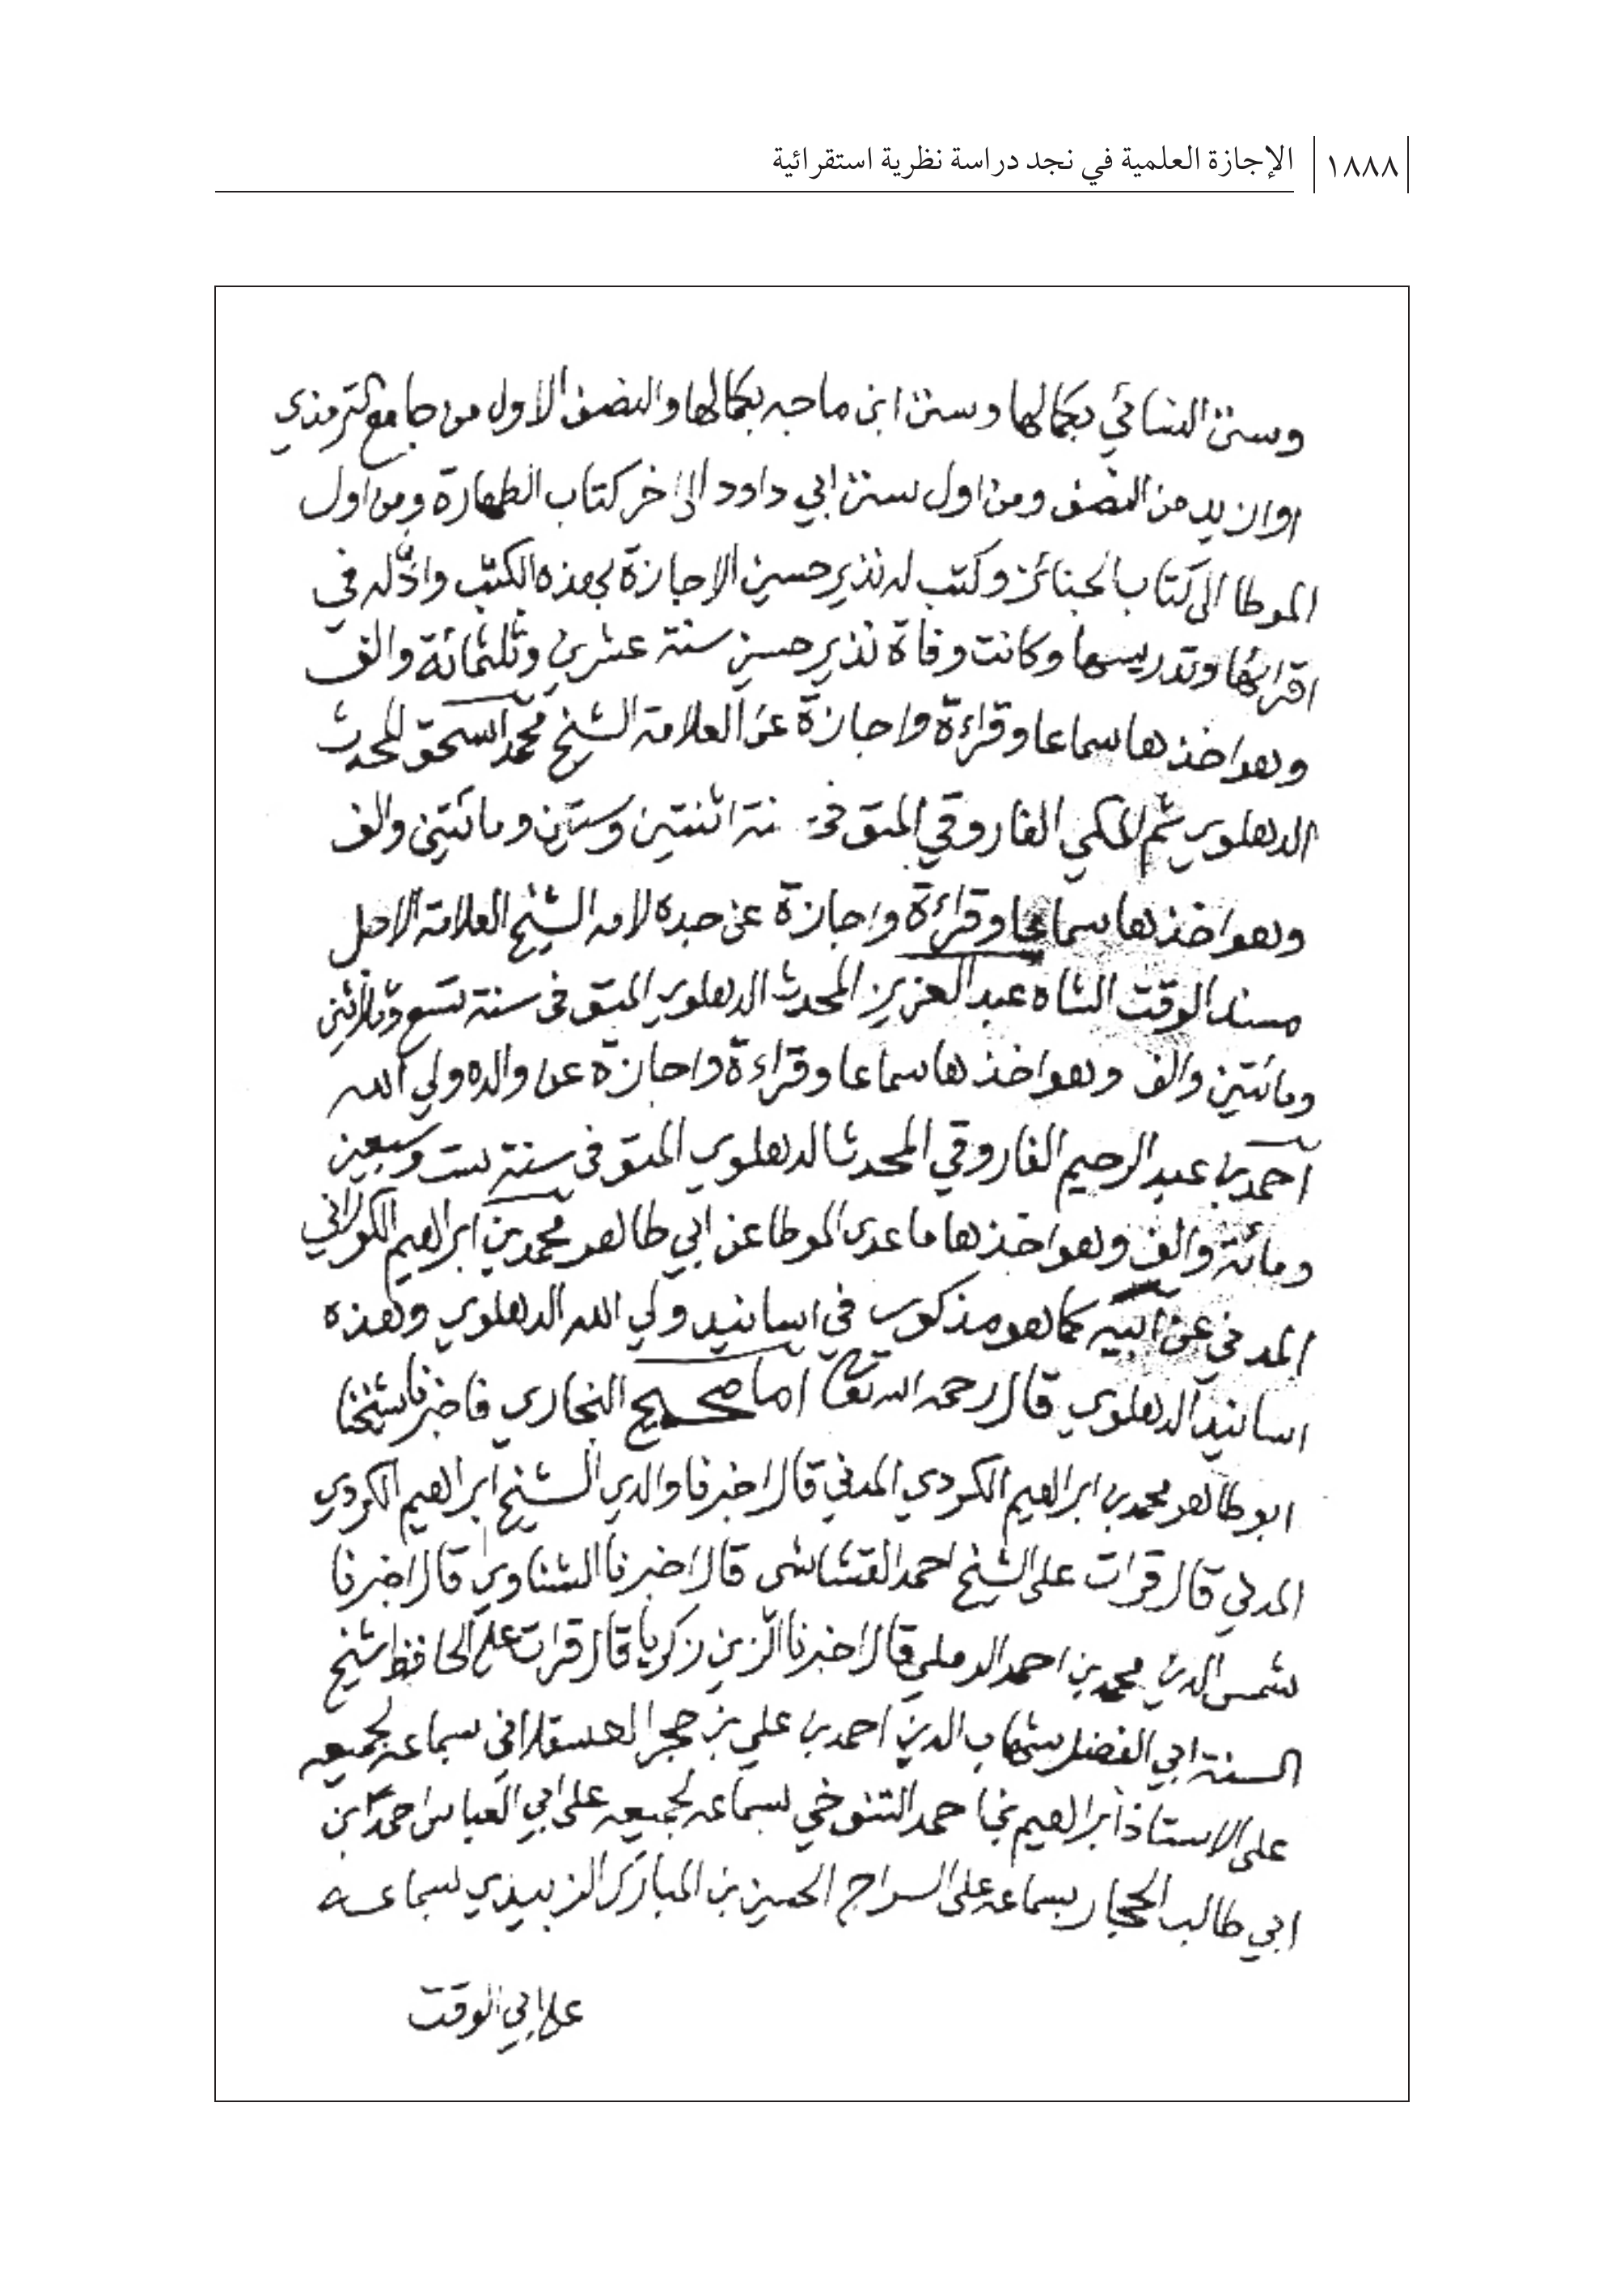 ١٨٨٨ الإجازة العلمية في نجد دراسة نظرية استقرائية
وسنن النسائي بكمالها وسنن ابن ماجه بكمالها والنصف الاول من جامع الترمذي
او ازيد من النصف ومن اول سنن ابي داود الى اخر كتاب الطهارة ومن اول
الموطا الى كتاب الجنائز وكتب له نذير حسين الاجازة بهذه الكتب واذن له في
اقرائها وتدريسها وكانت وفاة نذير حسين سنة عشرين وثلثمائة والف
وهو اخذها سماعا وقراءة واجازة عن العلامة الشيخ محمد اسحق المحدث
الدهلوي ثم المكي الفاروقي المتوفى سنة اثنتين وستين ومائتين والف
وهو اخذها سماعا وقراءة واجازة عن جده لامه الشيخ العلامة الاجل
مسند الوقت الشاه عبد العزيز المحدث الدهلوي المتوفى سنة تسع وثلاثين
ومائتين والف وهو اخذها سماعا وقراءة واجازة عن والده ولي الله
احمد بن عبد الرحيم الفاروقي المحدث الدهلوي المتوفى سنة ست وسبعين
ومائة والف وهو اخذها ما عدى الموطا عن ابي طاهر محمد بن ابراهيم الكوراني
المدني عن ابيه كما هو مذكور في اسانيد ولي الله الدهلوي وهذه
اسانيد الدهلوي قال رحمه الله تعالى اما صحيح البخاري فاخبرنا شيخنا
ابو طاهر محمد بن ابراهيم الكردي المدني قال اخبرنا والدي الشيخ ابراهيم الكردي
المدني قال قرات على الشيخ احمد القشاشي قال اخبرنا الشناوي قال اخبرنا
شمس الدين محمد بن احمد الرملي قال اخبرنا الزين زكريا قال قرات على الحافظ شيخ
السنة ابي الفضل شهاب الدين احمد بن علي بن حجر العسقلاني بسماعه لجميعه
على الاستاذ ابراهيم بن احمد التنوخي بسماعه لجميعه على ابي العباس احمد بن
ابي طالب الحجار بسماعه على السراج الحسين بن المبارك الزبيدي بسماعه
على ابي الوقت